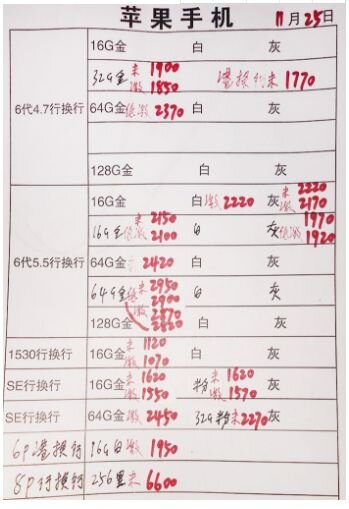 苹果手机 11月25日
16G金 白 灰
32G金 未1900 激1850 港换行未1770
6代4.7行换行 64G金 绝激2370
128G金 白 灰
16G金 白激2220 灰 未2220 激2170
16G金 未2150 绝激2100 白 灰 1970 绝激1920
6代5.5行换行 64G金 未2420 白 灰
64G金 未2950 绝2900 白 灰
128G金 激2870 2820 白 灰
1530行换行 16G金 未1120 激1070 白 灰
SE行换行 16G金 未1620 激1550 粉 未1620 激1570
SE行换行 64G金 激2450 32G粉未2270 灰
6P港换行 16G白 激1950
8P行换行 256黑 未6600